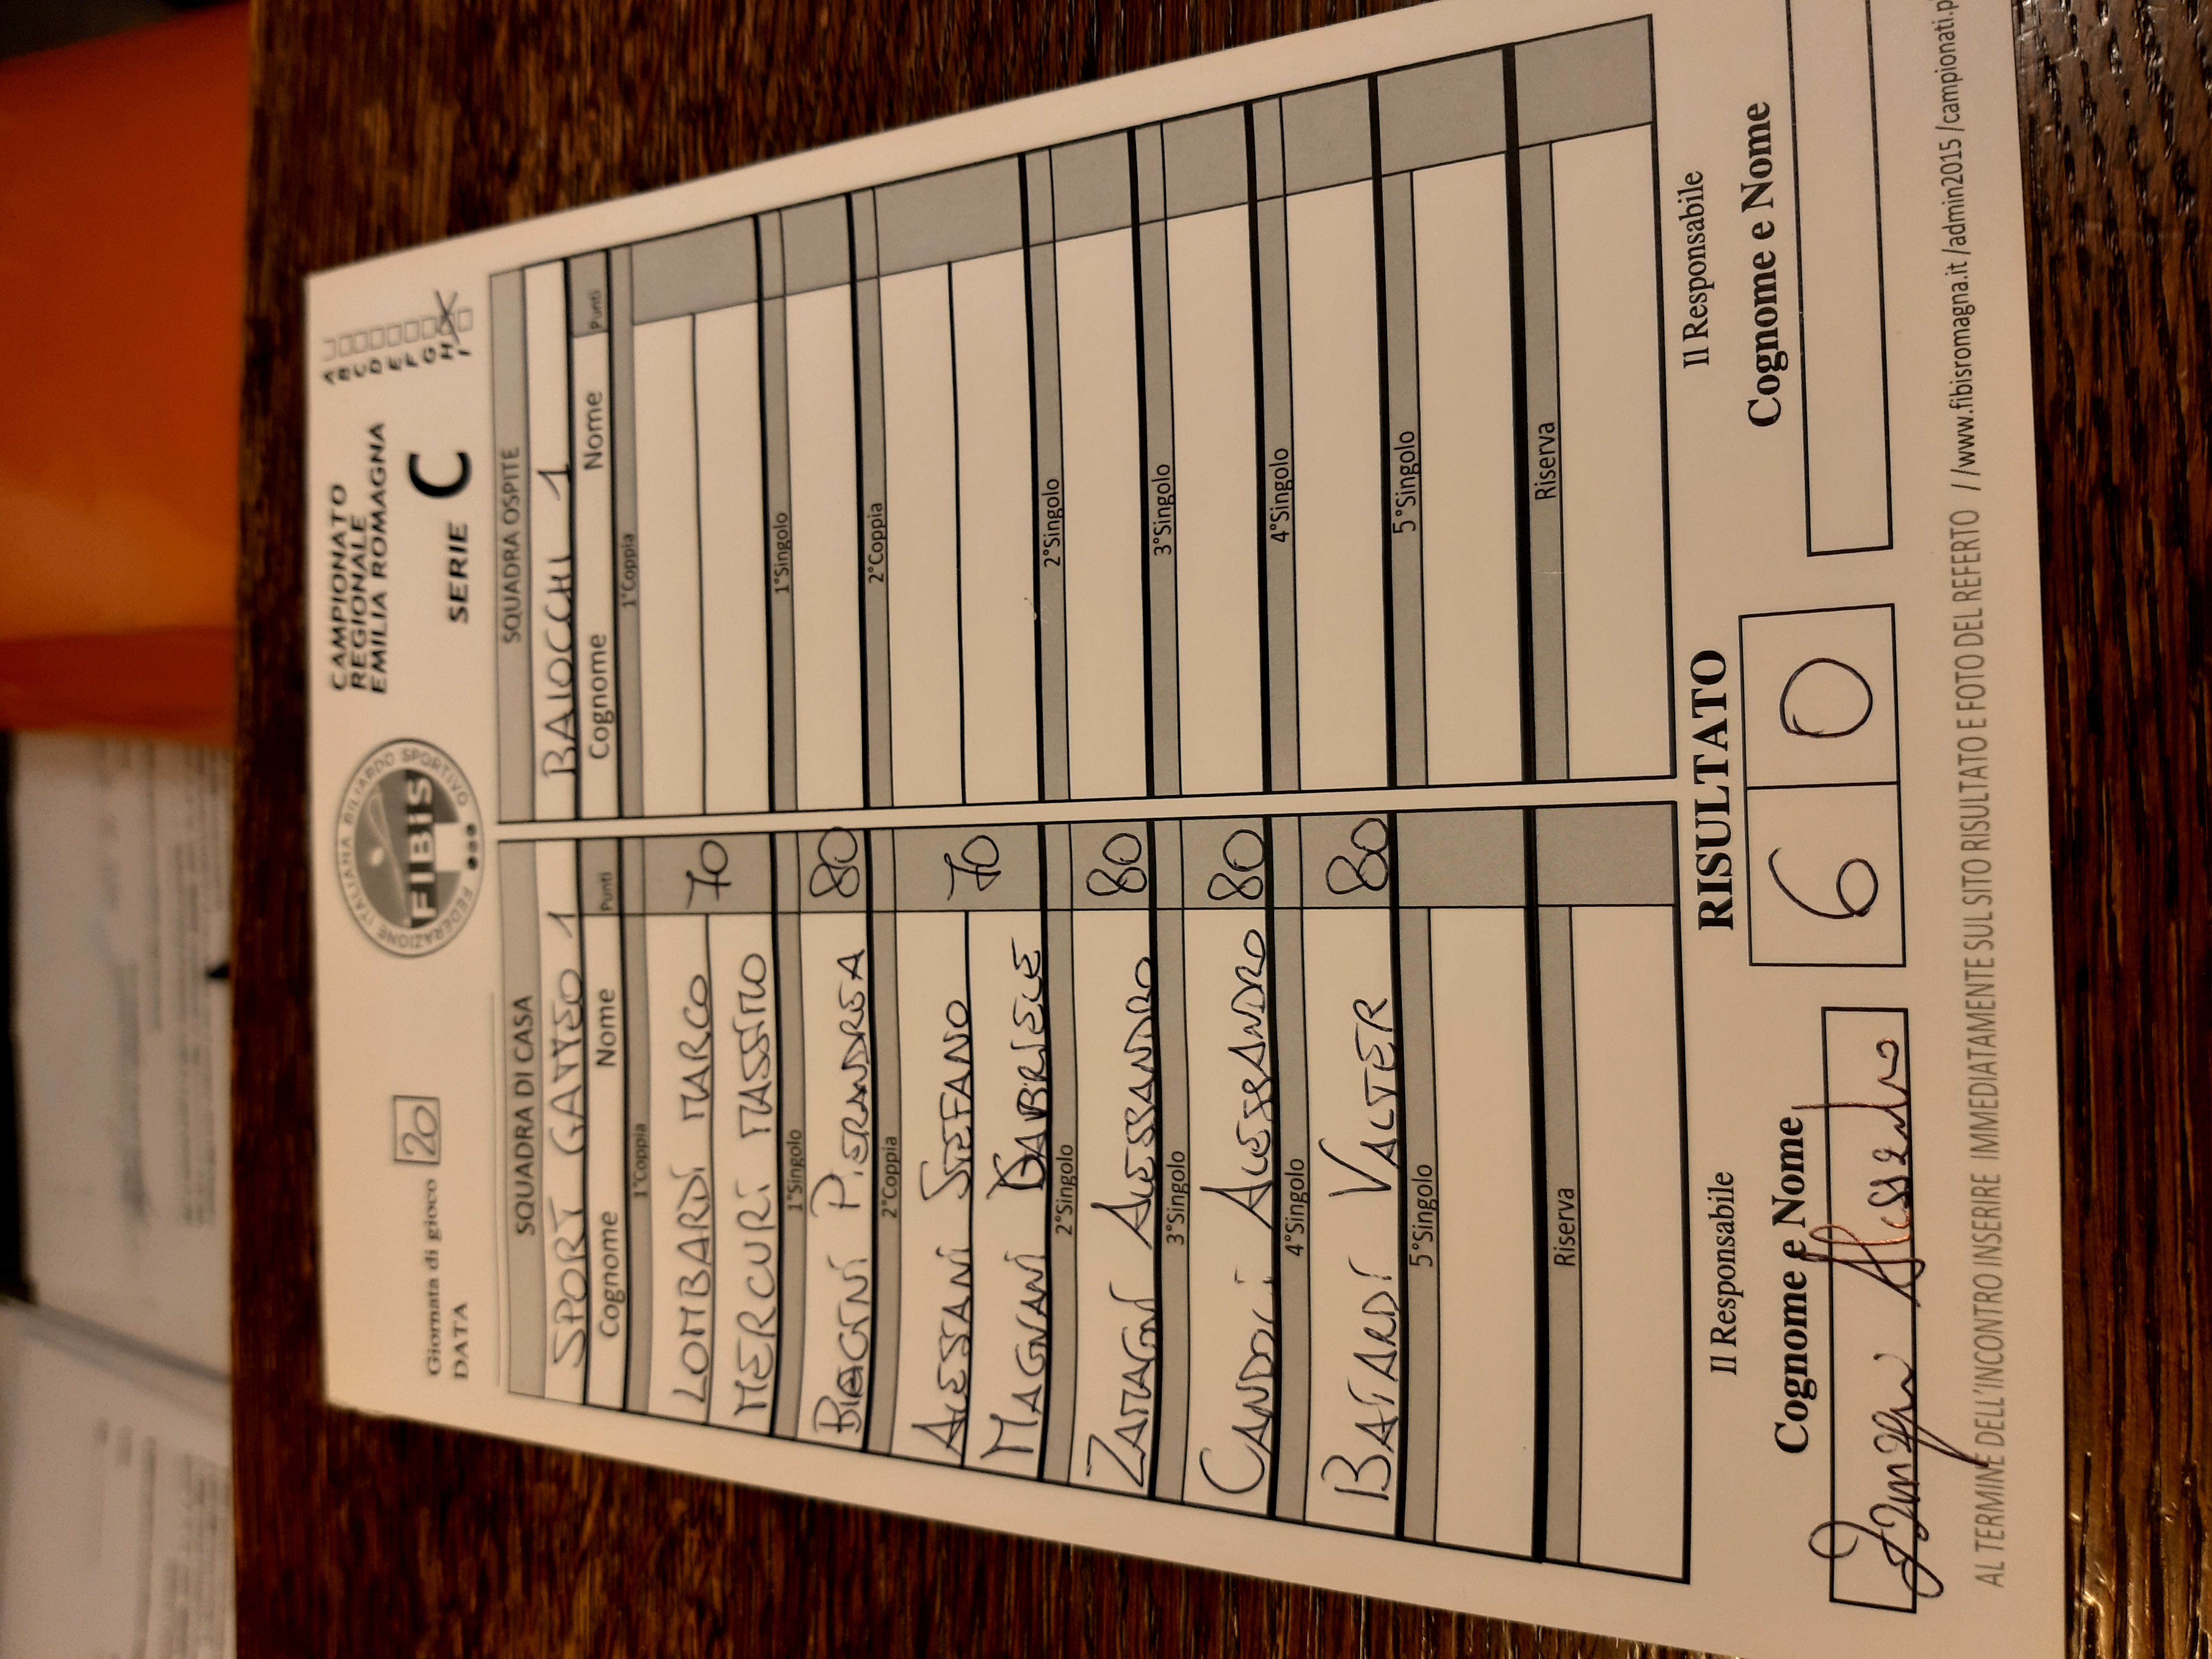 Giornata di gioco 20
DATA
FEDERAZIONE ITALIANA BILIARDO SPORTIVO
FIBiS
CAMPIONATO
REGIONALE
EMILIA ROMAGNA
SERIE C
A
B
C
D
E
F
G
H
I
SQUADRA DI CASA SQUADRA OSPITE
SPORT GATTEO 1 BAIOCCHI 1
Cognome Nome Punti Cognome Nome Punti
1°Coppia 1°Coppia
LOMBARDI MARCO 70
MERCURI MASSIMO
1°Singolo 1°Singolo
BIAGINI PIERANDREA 80
2°Coppia 2°Coppia
ALESSANI STEFANO 70
MAGNANI GABRIELE
2°Singolo 2°Singolo
ZAMAGNI ALESSANDRO 80
3°Singolo 3°Singolo
CANDOLI ALESSANDRO 80
4°Singolo 4°Singolo
BATARDI VALTER 80
5°Singolo 5°Singolo
Riserva Riserva
Il Responsabile RISULTATO Il Responsabile
Cognome e Nome 6 0 Cognome e Nome
Alessandro
AL TERMINE DELL'INCONTRO INSERIRE IMMEDIATAMENTE SUL SITO RISULTATO E FOTO DEL REFERTO /www.fibisromagna.it/admin2015/campionati.p